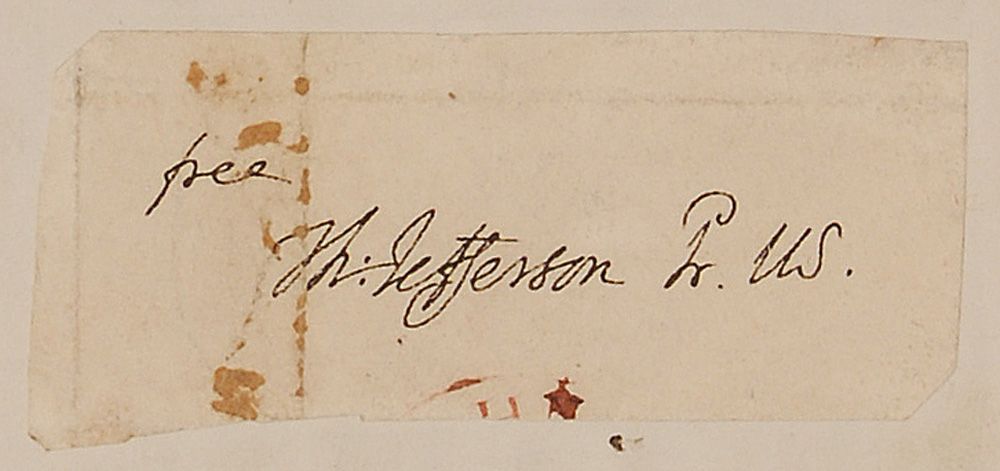 free
Th: Jefferson Pr. US.